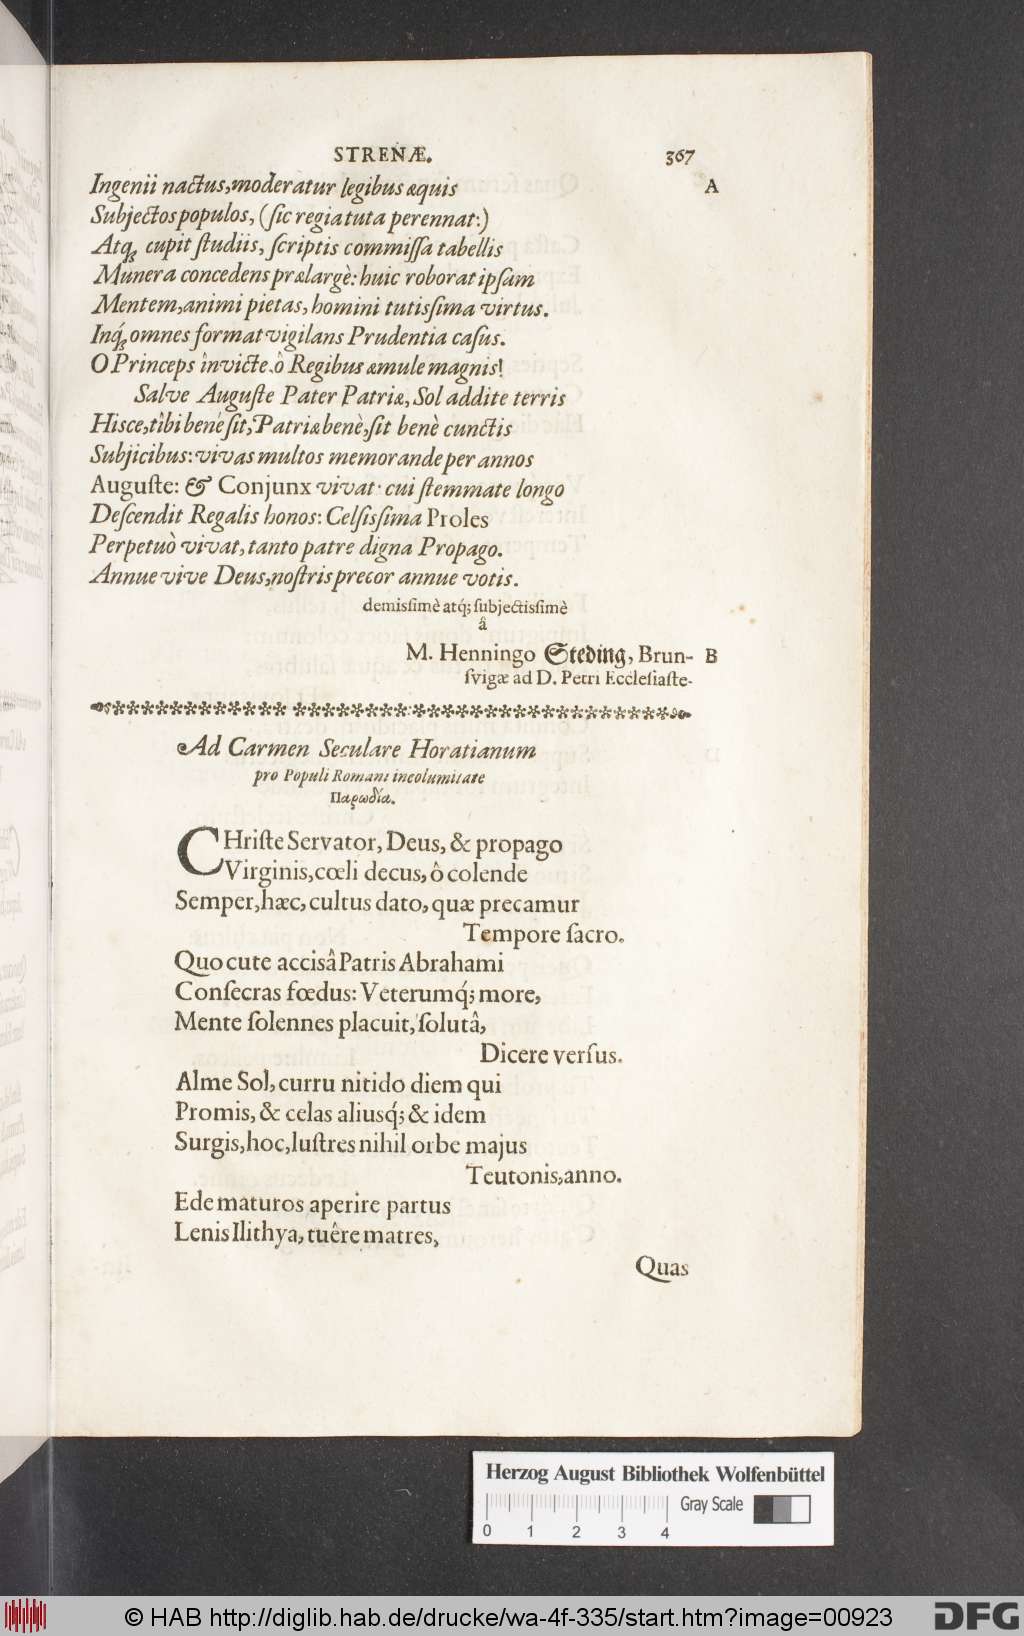 STRENÆ. 367
Ingenii nactus, moderatur legibus æquis A
Subjectos populos, (sic regia tuta perennat:)
Atq; cupit studiis, scriptis commissa tabellis
Munera concedens prælargè: huic roborat ipsam
Mentem, animi pietas, homini tutissima virtus.
Inq́; omnes format vigilans Prudentia casus.
O Princeps invicte, ô Regibus æmule magnis!
Salve Auguste Pater Patriæ, Sol addite terris
Hisce, tibi benè sit, Patriæ benè, sit benè cunctis
Subjicibus: vivas multos memorande per annos
Auguste: & Conjunx vivat: cui stemmate longo
Descendit Regalis honos: Celsissima Proles
Perpetuò vivat, tanto patre digna Propago.
Annue vive Deus, nostris precor annue votis.
demissimè atq́; subjectissimè
â
M. Henningo Steding, Brun- B
svigæ ad D. Petri Ecclesiaste.
Ad Carmen Seculare Horatianum
pro Populi Romani incolumitate
Παρωδία.
CHriste Servator, Deus, & propago
Virginis, cœli decus, ô colende
Semper, hæc, cultus dato, quæ precamur
Tempore sacro.
Quo cute accisâ Patris Abrahami
Consecras fœdus: Veterumq́; more,
Mente solennes placuit, solutâ,
Dicere versus.
Alme Sol, curru nitido diem qui
Promis, & celas aliusq́; & idem
Surgis, hoc, lustres nihil orbe majus
Teutonis, anno.
Ede maturos aperire partus
Lenis Ilithya, tuêre matres,
Quas
Herzog August Bibliothek Wolfenbüttel
Gray Scale
0 1 2 3 4
© HAB http://diglib.hab.de/drucke/wa-4f-335/start.htm?image=00923 DFG